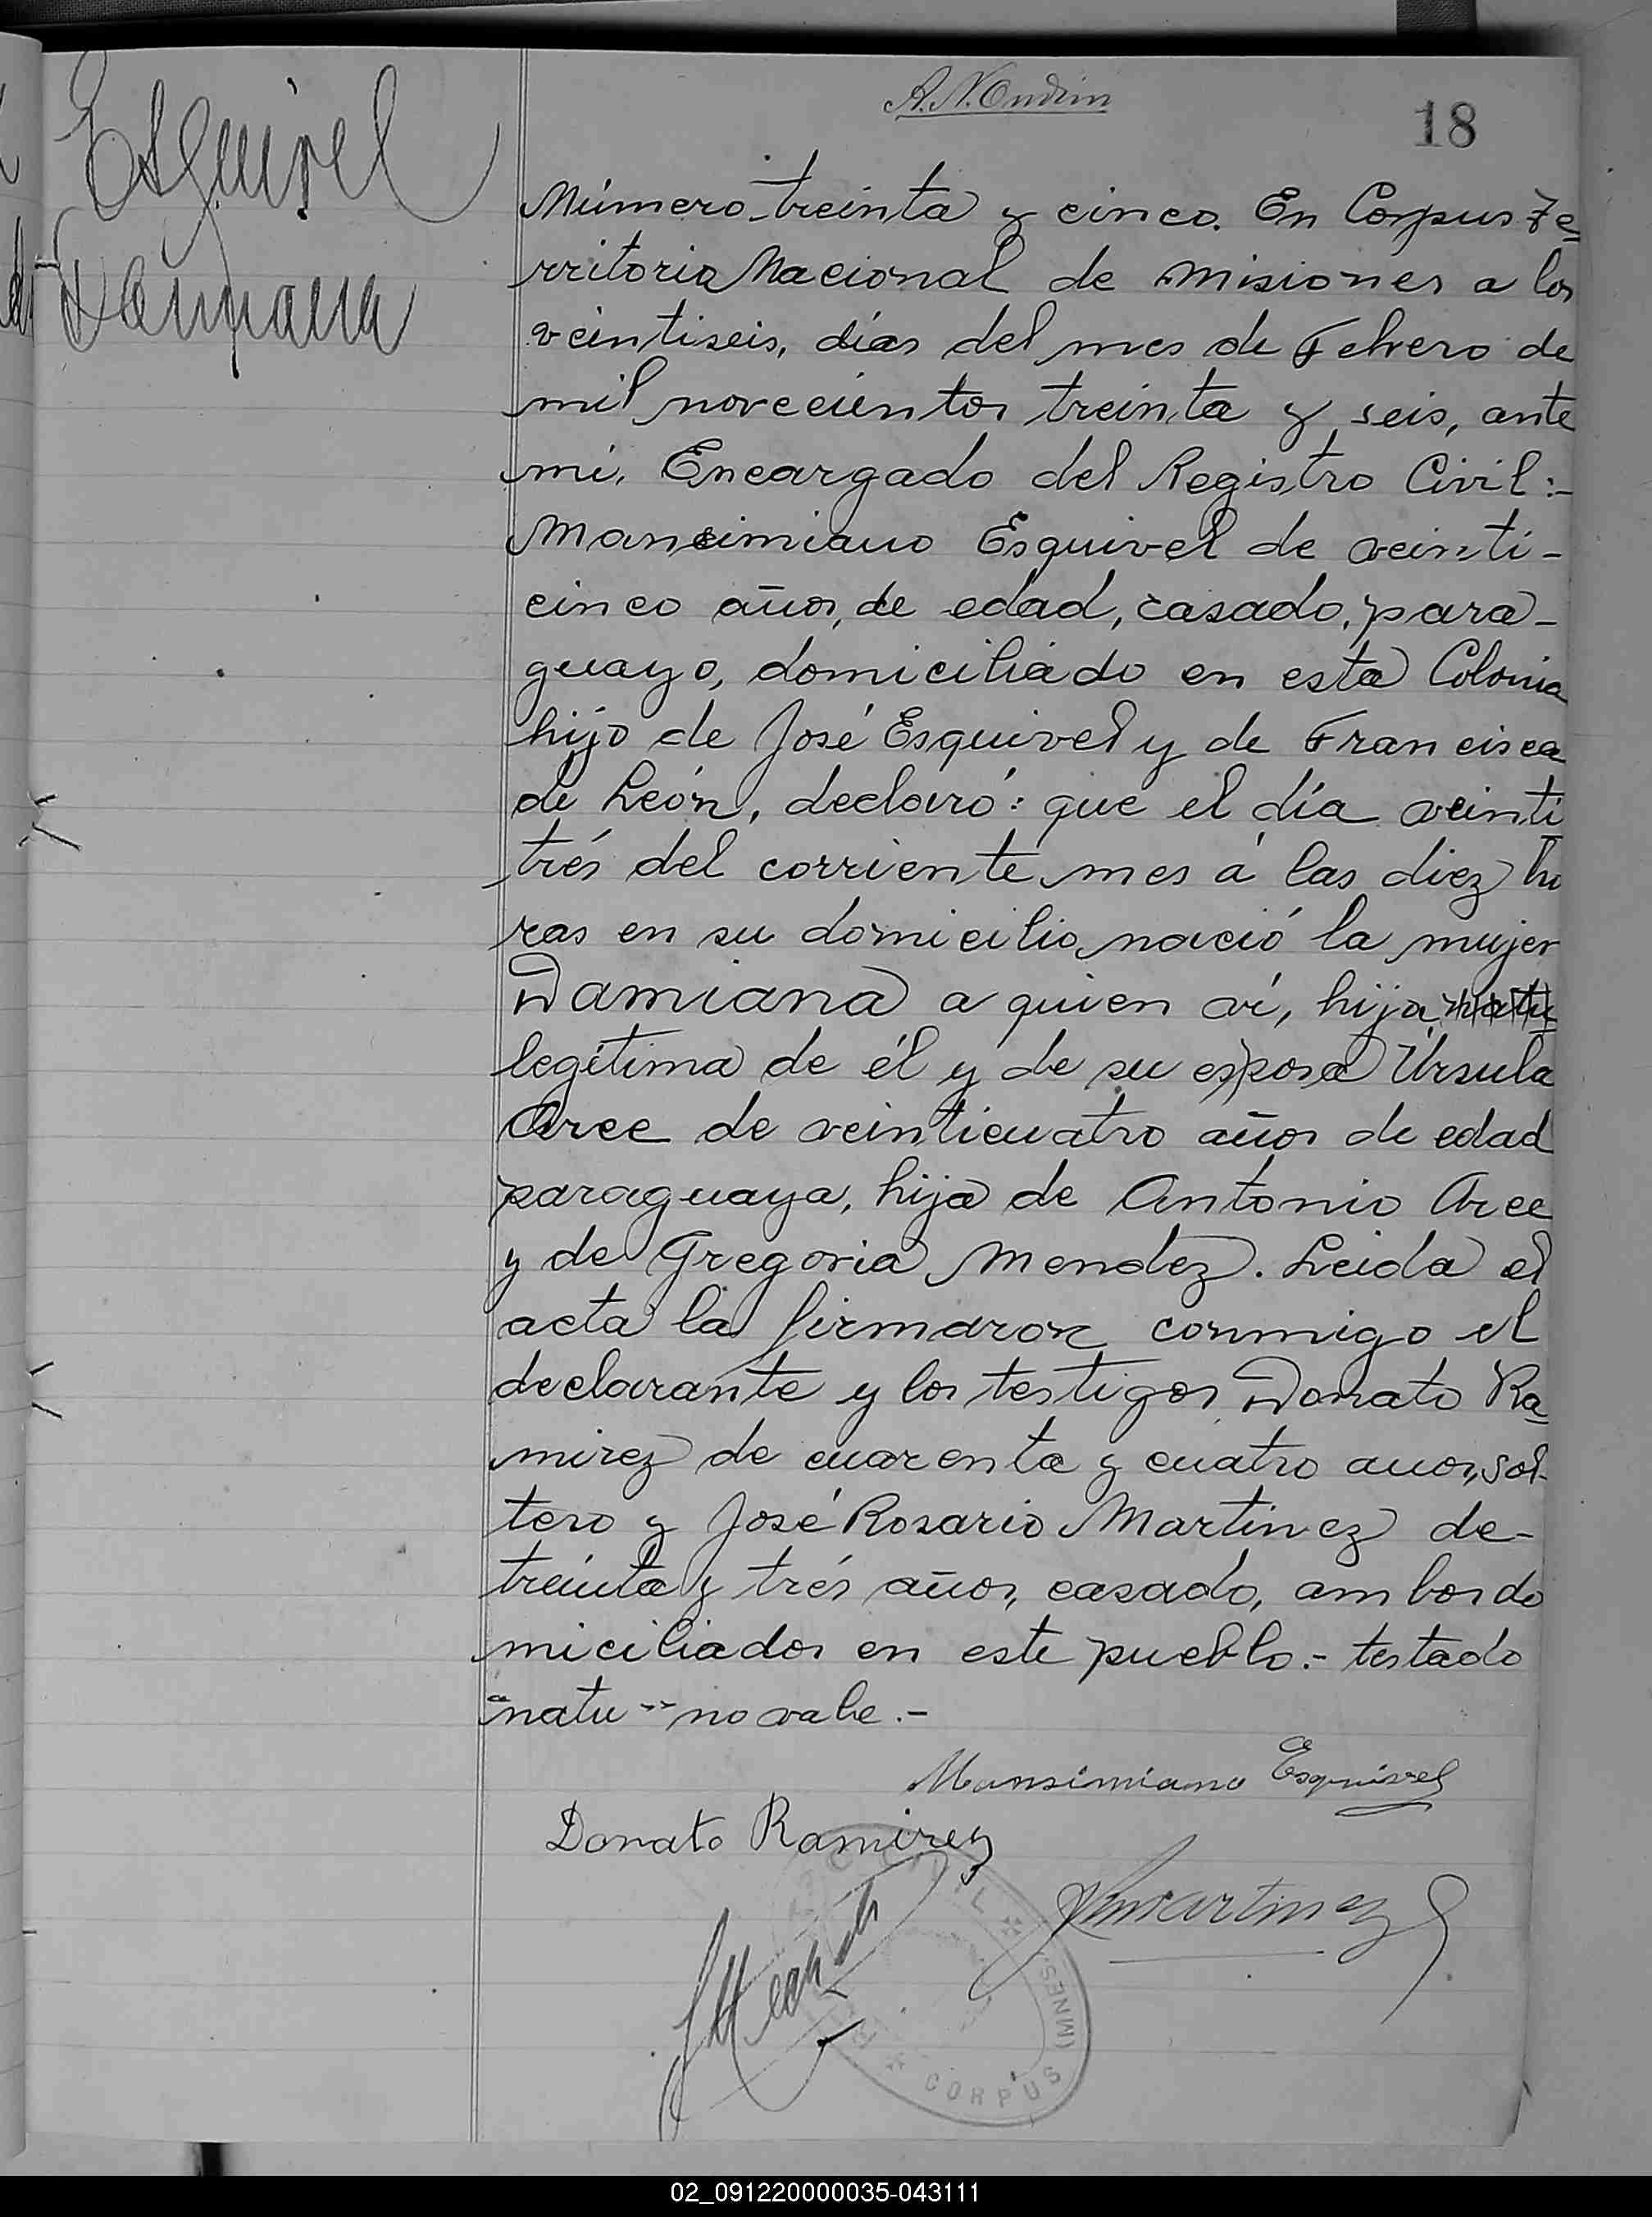 18
Esquivel
Damiana
Número treinta y cinco. En Corpus Te
rritorio Nacional de Misiones a los
veintiseis, días del mes de Febrero de
mil novecientos treinta y seis, ante
mi, Encargado del Registro Civil:-
Mansimiano Esquivel de veinti-
cinco años, de edad, casado, para-
guayo, domiciliado en esta Colonia
hijo de José Esquivel y de Francisca
de León, declaró: que el día veinti
trés del corriente mes á las diez ho
ras en su domicilio nació la mujer
Damiana a quien ví, hija natu
legítima de él y de su esposa Úrsula
Arce de veinticuatro años de edad
paraguaya, hija de Antonio Arce
y de Gregoria Mendez. Leida el
acta la firmaron conmigo el
declarante y los testigos Donato Ra
mirez de cuarenta y cuatro anos, sol-
tero y José Rosario Martinez de-
treinta y trés años, casado, ambos do
miciliados en este pueblo.- testado
"natu" no vale.-
Mansimiano Esquivel
Donato Ramirez
Martinez
CIVIL
CORPUS
02_091220000035-043111